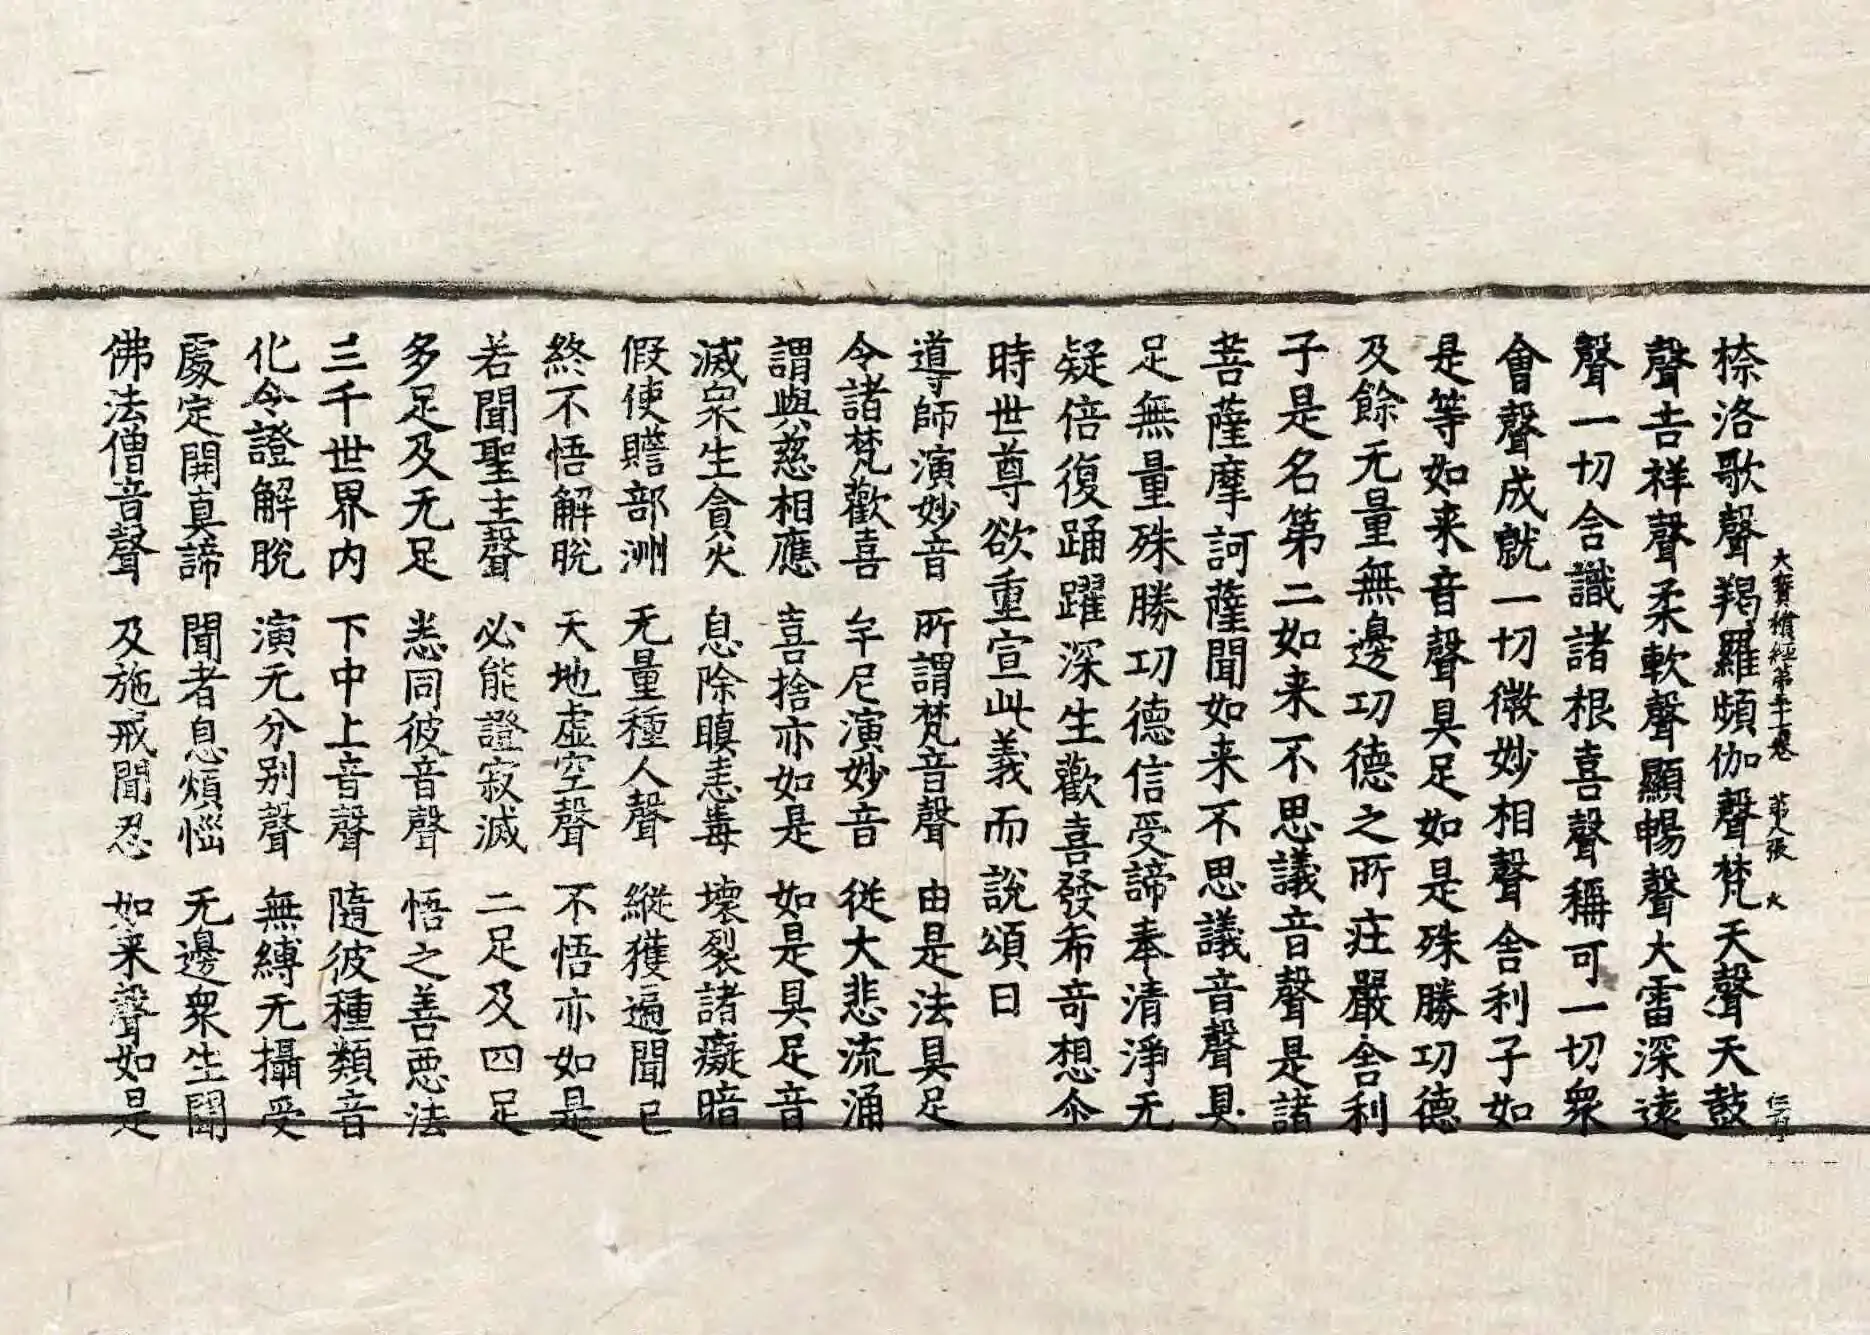 大寳積經第三十七卷　第八張　火
㮈洛歌聲羯羅頻伽聲梵天聲天鼓
聲吉祥聲柔軟聲顯暢聲大雷深遠
聲一切含識諸根喜聲稱可一切衆
會聲成就一切微妙相聲舍利子如
是等如来音聲具足如是殊勝功德
及餘无量無邊功德之所庄嚴舍利
子是名第二如来不思議音聲是諸
菩薩摩訶薩聞如来不思議音聲具
足無量殊勝功德信受諦奉清淨无
疑倍復踊躍深生歡喜發希奇想尒
時世尊欲重宣此義而說頌曰
導師演妙音　所謂梵音聲　由是法具足
令諸梵歡喜　牟尼演妙音　從大悲流涌
謂與慈相應　喜捨亦如是　如是具足音
滅衆生貪火　息除瞋恚毒　壞裂諸癡暗
假使贍部洲　无量種人聲　縱獲遍聞已
終不悟解脫　天地虛空聲　不悟亦如是
若聞聖主聲　必能證寂滅　二足及四足
多足及无足　悉同彼音聲　悟之善惡法
三千世界内　下中上音聲　隨彼種類音
化令證解脫　演无分别聲　無縛无攝受
處定開真諦　聞者息煩惱　无邊衆生聞
佛法僧音聲　及施戒聞忍　如来聲如是